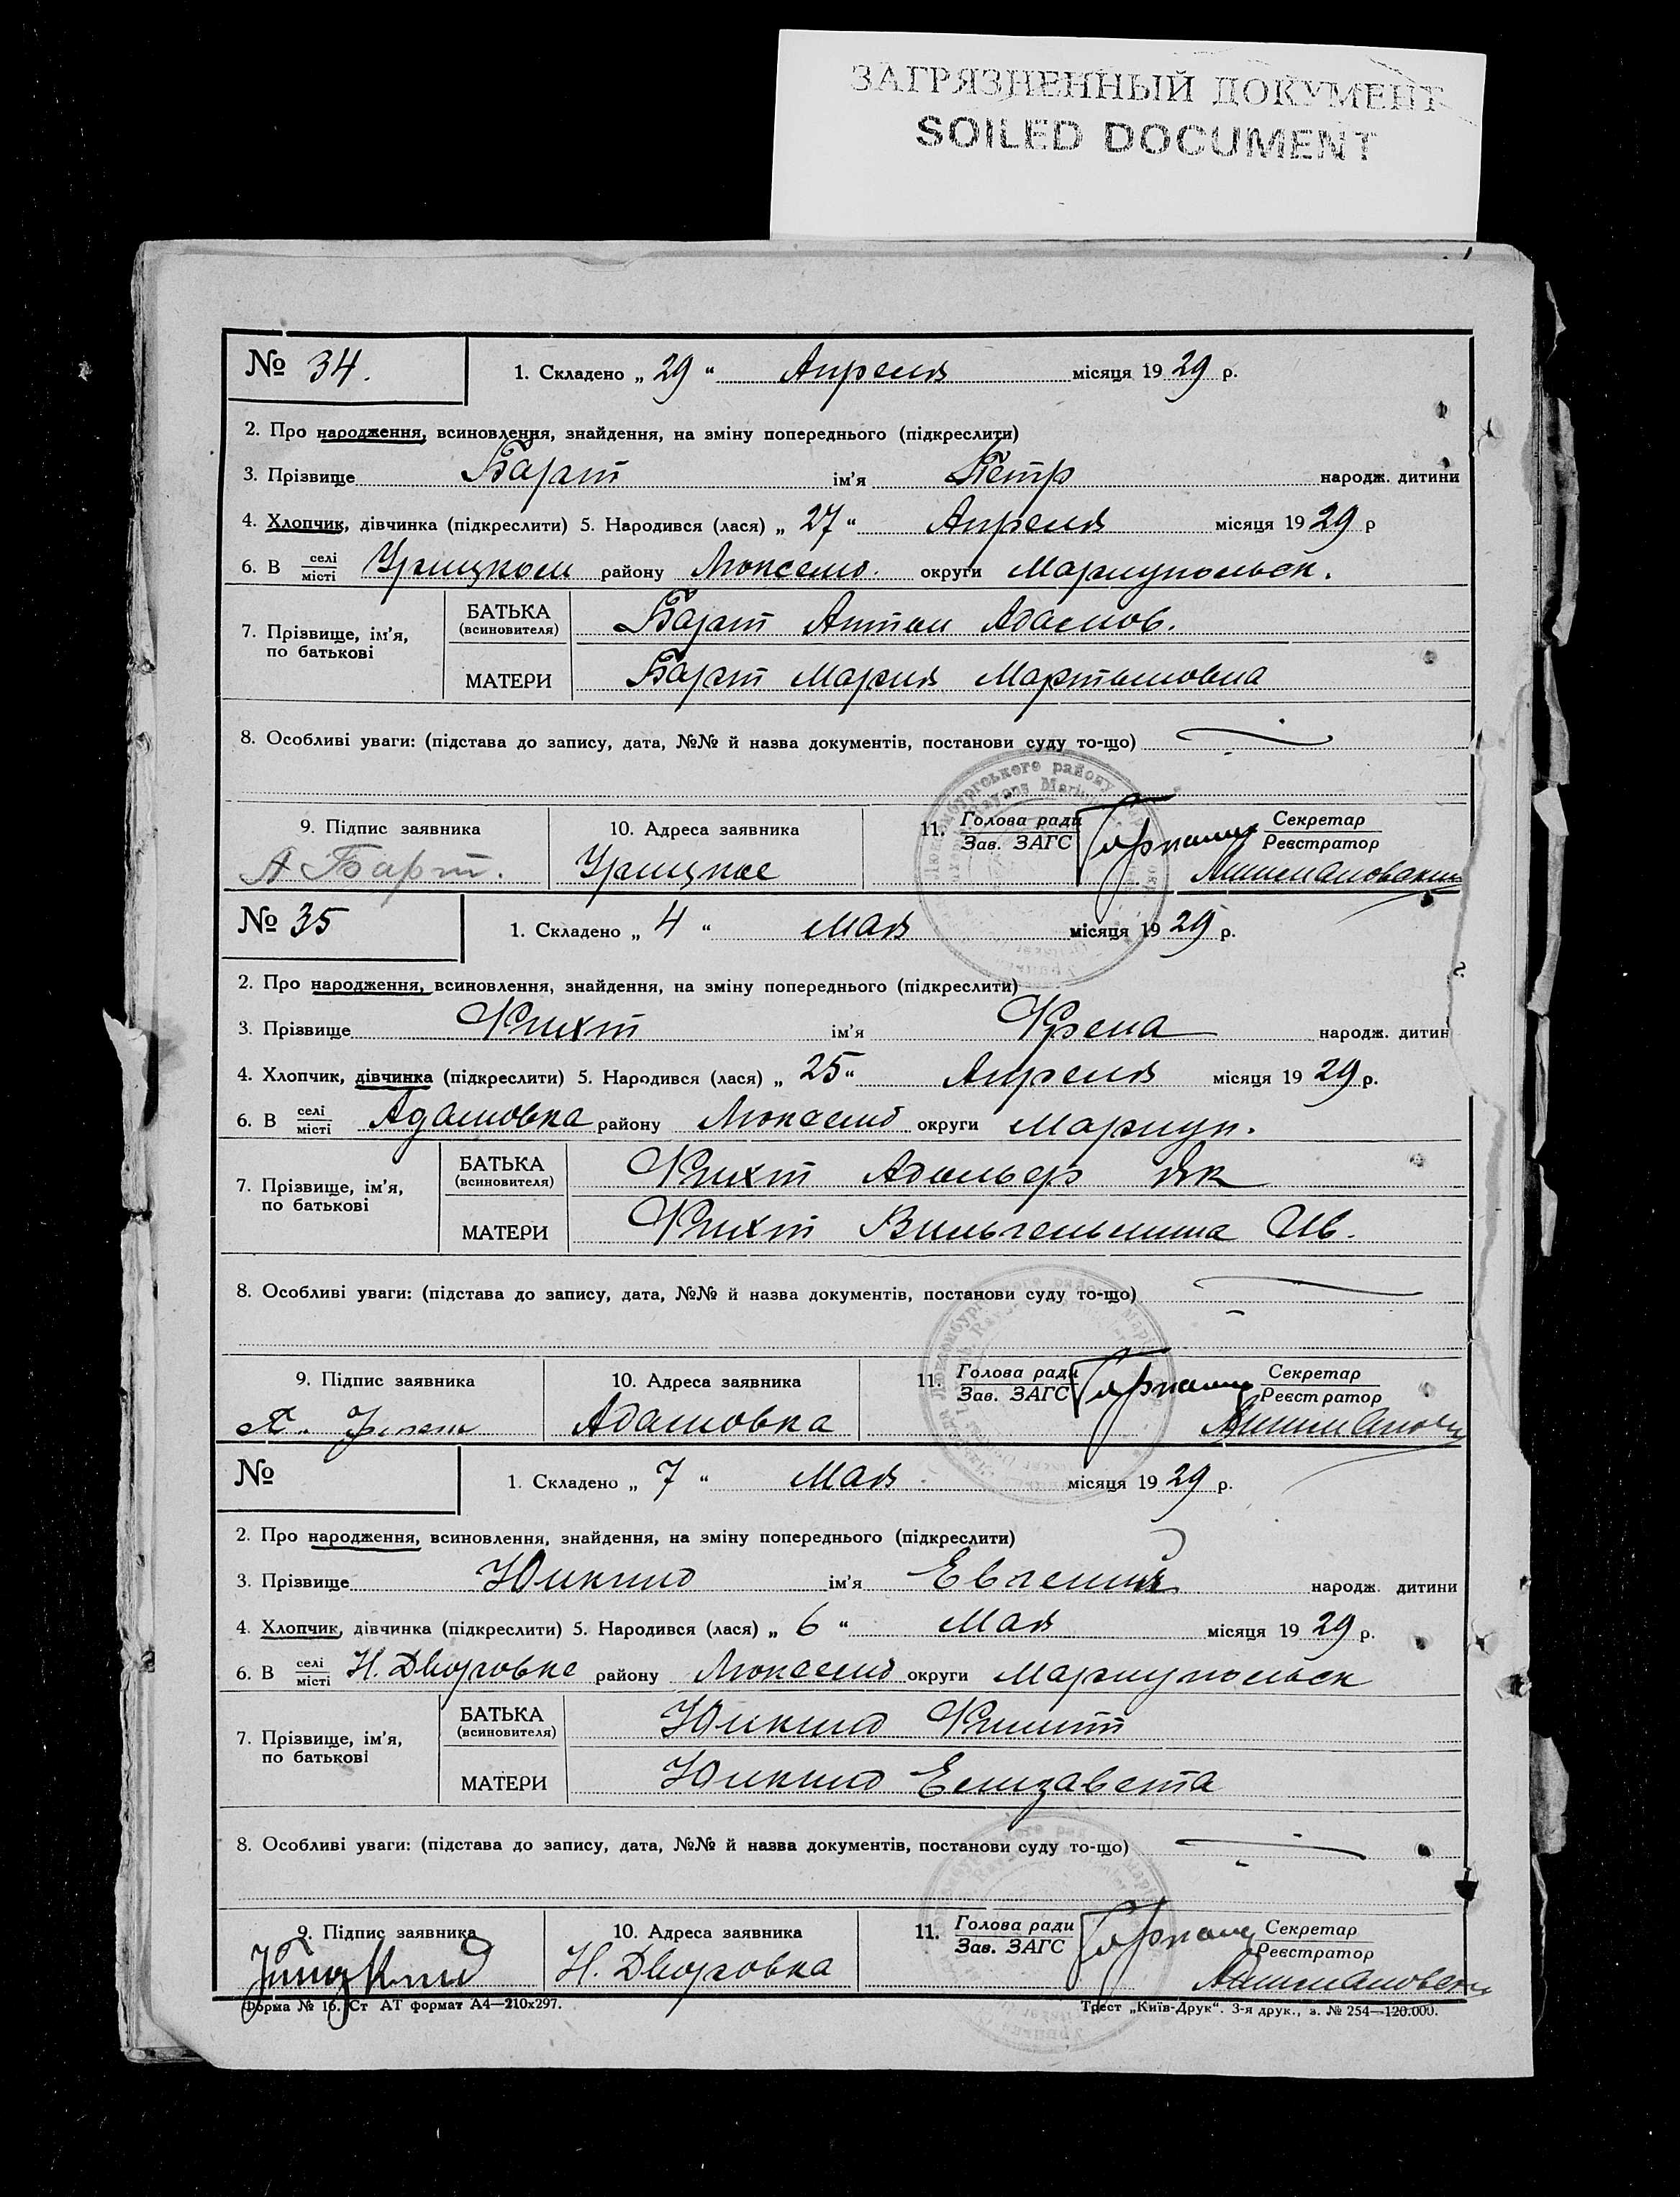 ЗАГРЯЗНЕННЫЙ ДОКУМЕНТ
SOILED DOCUMENT
№ 34. 1. Складено „ 29 “ Апреля місяця 19 29 р.
2. Про народження, всиновлення, знайдення, на зміну попереднього (підкреслити)
3. Прізвище Барт ім'я Петр народж. дитини
4. Хлопчик, дівчинка (підкреслити) 5. Народився (лася) „ 27 “ Апреля місяця 19 29 р
6. В селі місті Урицком району Люксемб. округи Мариупольск.
7. Прізвище, ім'я, по батькові
БАТЬКА (всиновителя) Барт Антон Адамов.
МАТЕРИ Барт Мария Мартыновна
8. Особливі уваги: (підстава до запису, дата, №№ й назва документів, постанови суду то-що)
9. Підпис заявника 10. Адреса заявника 11. Голова ради Зав. ЗАГС Секретар Реєстратор
А Барт. Урицкое
№ 35 1. Складено „ 4 “ мая місяця 19 29 р.
2. Про народження, всиновлення, знайдення, на зміну попереднього (підкреслити)
3. Прізвище ім'я народж. дитин
4. Хлопчик, дівчинка (підкреслити) 5. Народився (лася) „ 25 “ Апреля місяця 19 29 р.
6. В селі місті Адамовка району Люксемб округи Мариуп.
7. Прізвище, ім'я, по батькові
БАТЬКА (всиновителя) Адольф Як
МАТЕРИ Вильгельмина Ив.
8. Особливі уваги: (підстава до запису, дата, №№ й назва документів, постанови суду то-що)
9. Підпис заявника 10. Адреса заявника 11. Голова ради Зав. ЗАГС Секретар Реєстратор
Адамовка
№ 1. Складено „ 7 “ мая місяця 19 29 р.
2. Про народження, всиновлення, знайдення, на зміну попереднього (підкреслити)
3. Прізвище Юнкинд ім'я Евгений народж. дитини
4. Хлопчик, дівчинка (підкреслити) 5. Народився (лася) „ 6 “ мая місяця 19 29 р.
6. В селі місті Н. Дворовке району Люксемб округи Мариупольск
7. Прізвище, ім'я, по батькові
БАТЬКА (всиновителя) Юнкинд
МАТЕРИ Юнкинд Елизавета
8. Особливі уваги: (підстава до запису, дата, №№ й назва документів, постанови суду то-що)
9. Підпис заявника 10. Адреса заявника 11. Голова ради Зав. ЗАГС Секретар Реєстратор
Н. Дворовка
Форма № 16. Ст АТ формат А4—210х297. Трест „Київ-Друк“. 3-я друк., з. № 254—120.000.